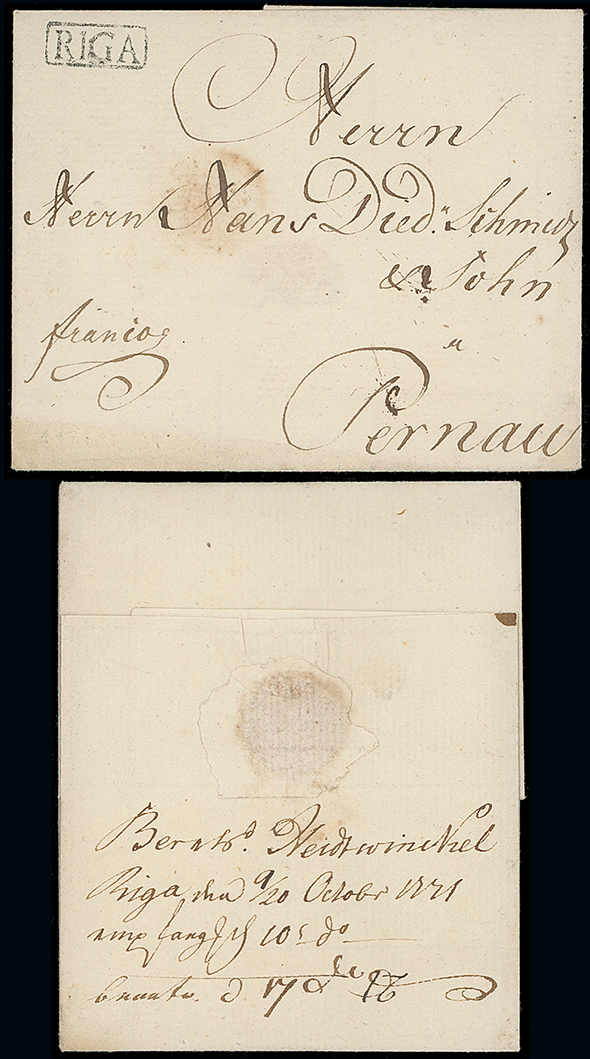 RIGA
Herrn
Herrn Hans Died: Schmidz
& Sohn
a
Pernau
franco
Bernhd. Heidtwinckel
Riga, den 9/20 Octobr 1771
empfang 10 do
beantw. d 17